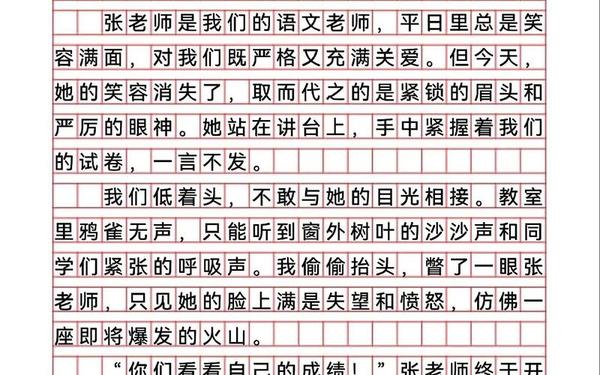 张老师是我们的语文老师，平日里总是笑
容满面，对我们既严格又充满关爱。但今天，
她的笑容消失了，取而代之的是紧锁的眉头和
严厉的眼神。她站在讲台上，手中紧握着我们
的试卷，一言不发。
我们低着头，不敢与她的目光相接。教室
里鸦雀无声，只能听到窗外树叶的沙沙声和同
学们紧张的呼吸声。我偷偷抬头，瞥了一眼张
老师，只见她的脸上满是失望和愤怒，仿佛一
座即将爆发的火山。
“你们看看自己的成绩！”张老师终于开